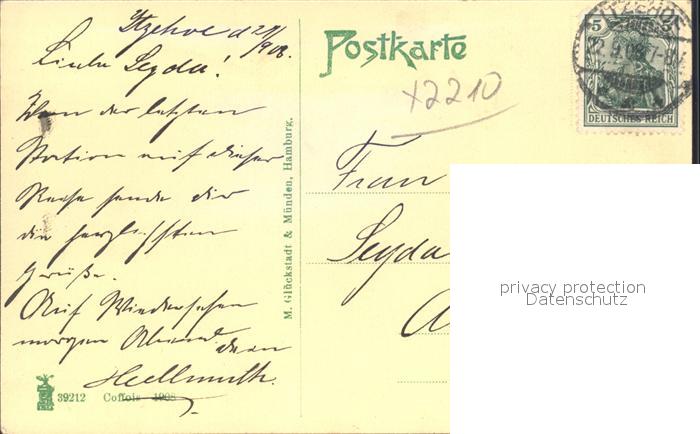 Itzehoe d 21/9 08.
Liebe Seyda!
Von der letzten
Station auf dieser
Reise sende dir
die herzlichsten
Grüße.
Auf Wiedersehen
morgen Abend. dein
Hellmuth.
39212 Coffois 1908
M. Glückstadt & Münden, Hamburg.
Postkarte
x2210
Frau
Seyda
5 5
ITZEHOE
22.9.08.7-8
DEUTSCHES REICH
privacy protection
Datenschutz